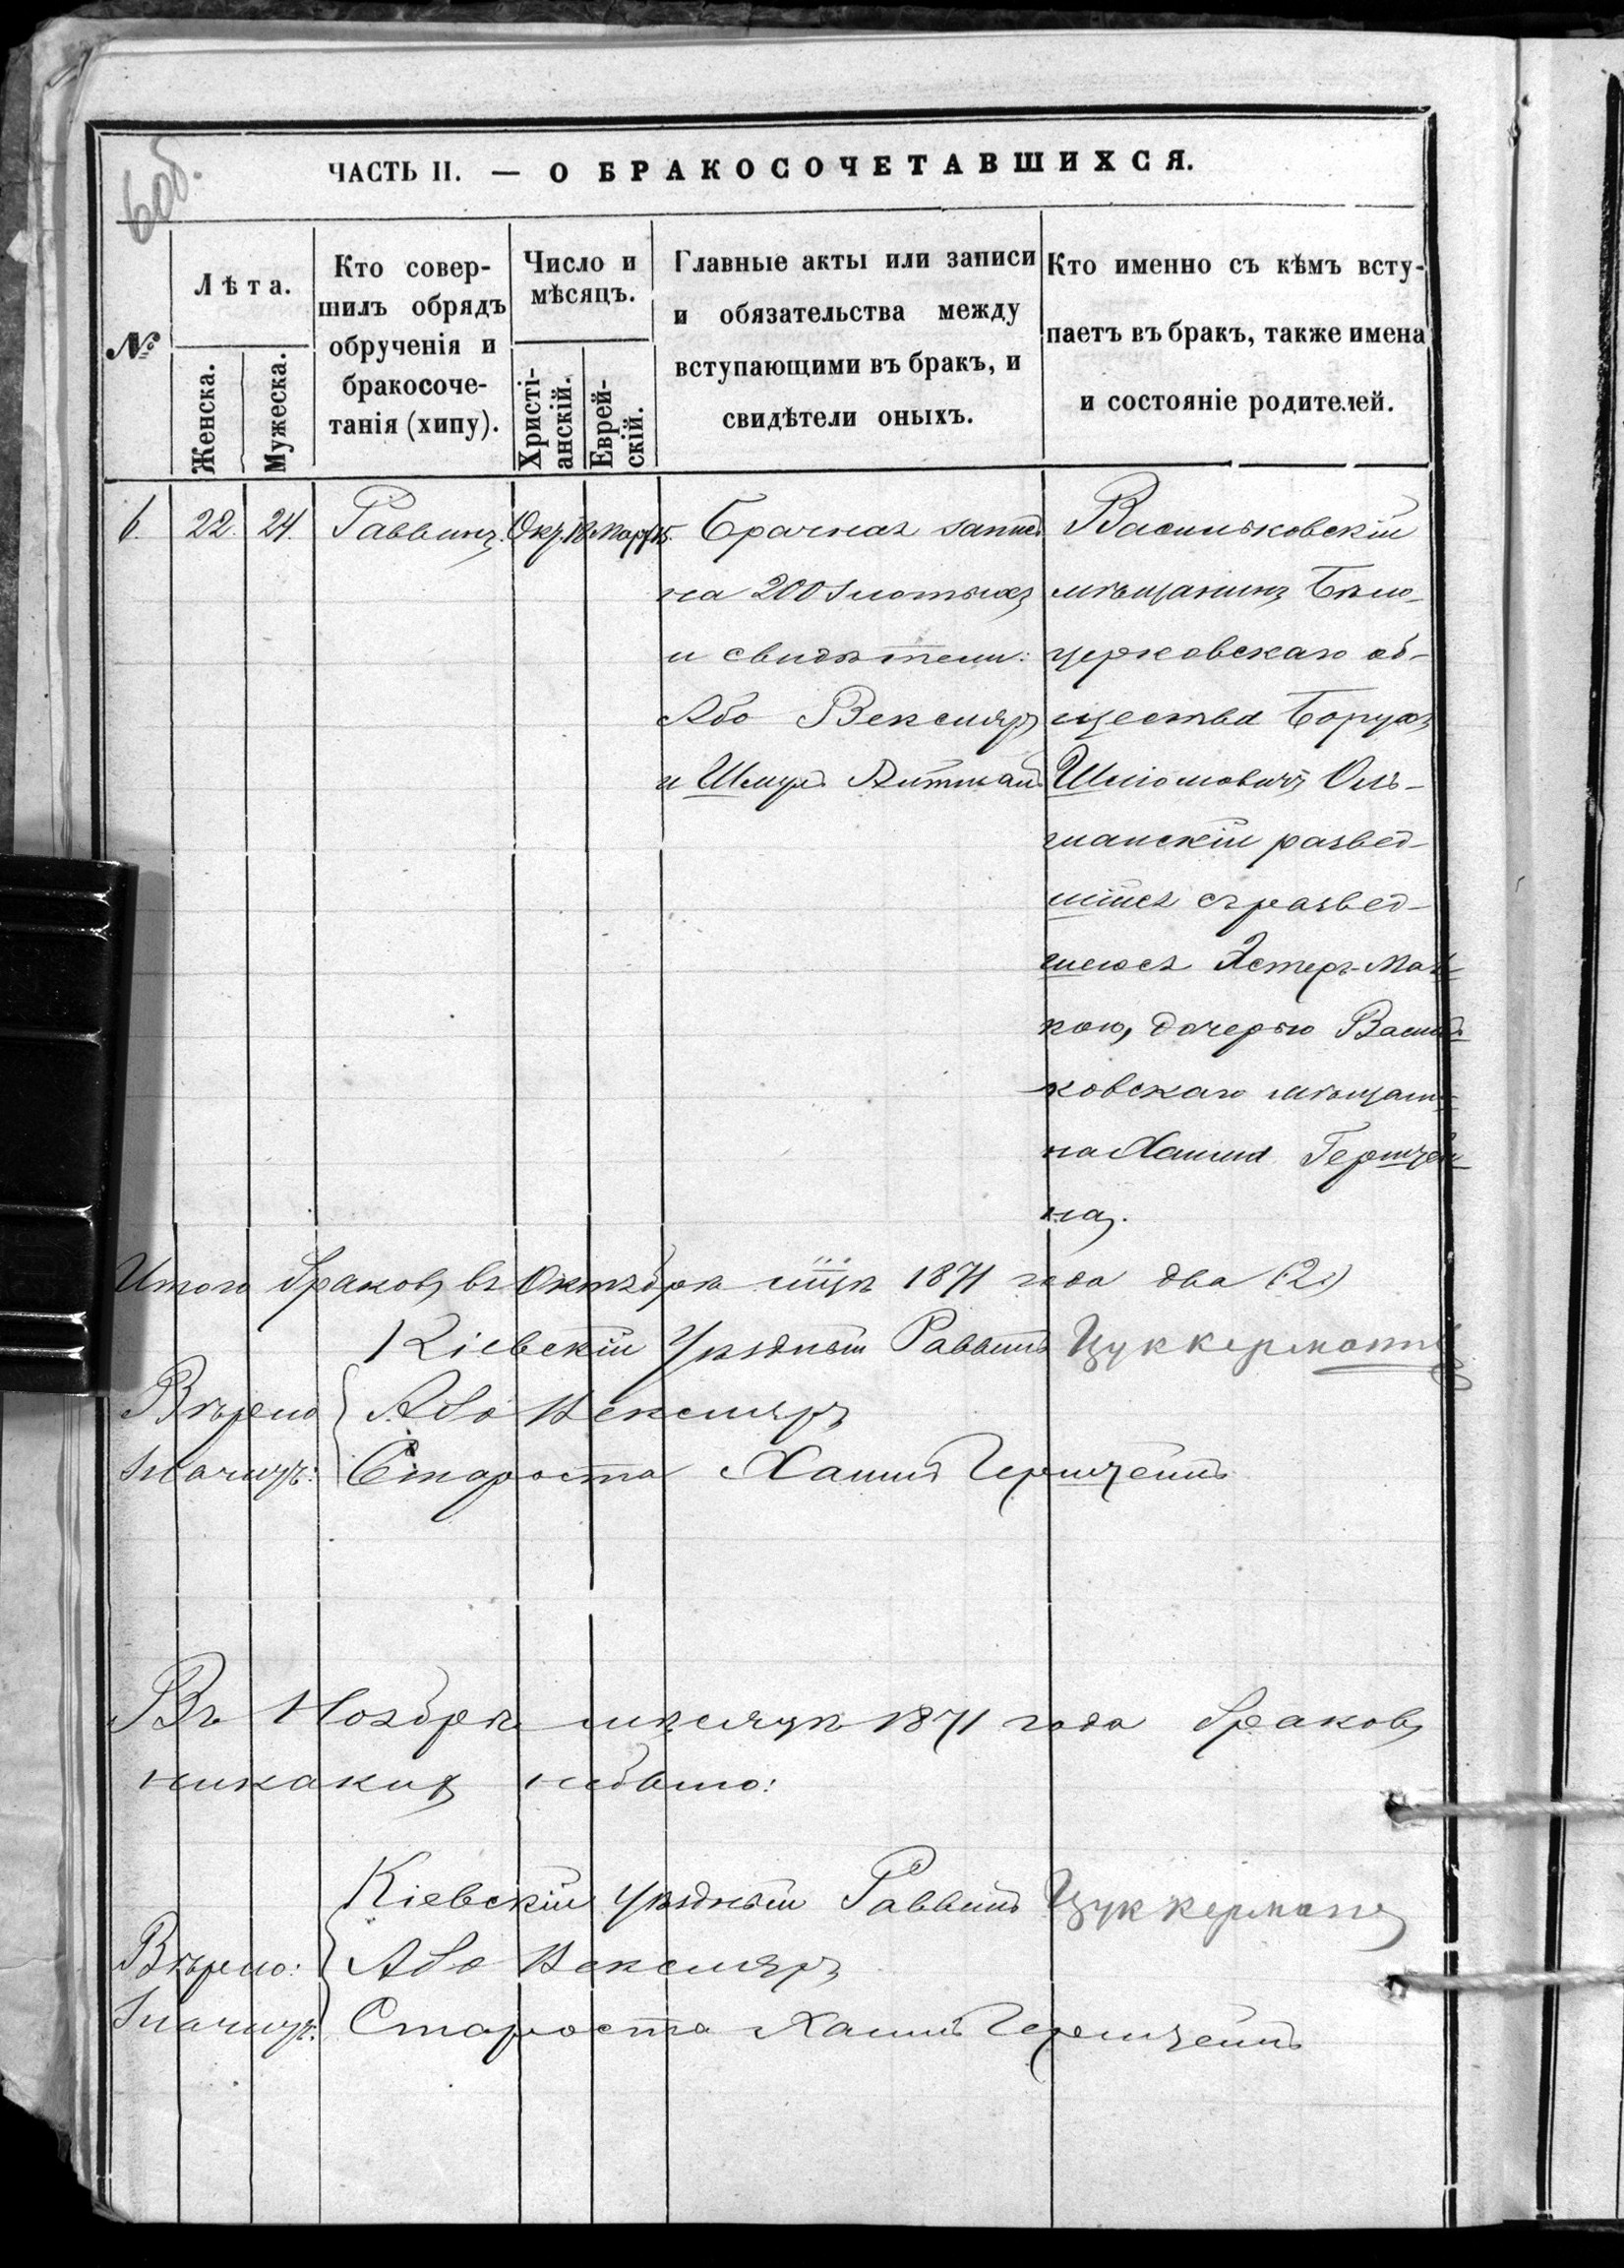 6об.
ЧАСТЬ II. — О БРАКОСОЧЕТАВШИХСЯ.
№
Лѣта.
Женска.
Мужеска.
Кто совер-
шилъ обрядъ
обрученія и
бракосоче-
танія (хипу).
Число и
мѣсяцъ.
Христі-
анскій.
Еврей-
скій.
Главные акты или записи
и обязательства между
вступающими въ бракъ, и
свидѣтели оныхъ.
Кто именно съ кѣмъ всту-
паетъ въ бракъ, также имена
и состояніе родителей.
6.
22.
24.
Раввинъ.
Окт. 18
15.
Брачная запись
на 200 злотыхъ
и свидѣтели:
Або Векслеръ
и Шмуль
Васильковскій
мѣщанинъ Бѣло-
церковскаго об-
щества Борухъ
Шліомовичъ Оль-
шанскій развед-
шійся съ развед-
шеюся Эстеръ-Мал-
кою, дочерью Василь-
ковскаго мѣщани-
на Хаима Герштей-
на.
Итого браковъ въ Октябрѣ мцѣ 1871 года два (2)
Кіевскій Уѣздный Раввинъ Цуккерманъ
Вѣрно Або Векслеръ
Староста Хаимъ Герштейнъ
Въ Ноябрѣ мѣсяцѣ 1871 года браковъ
никакихъ небыло:
Кіевскій Уѣздный Раввинъ Цуккерманъ
Вѣрно: Або Векслеръ
Староста Хаимъ Герштейнъ